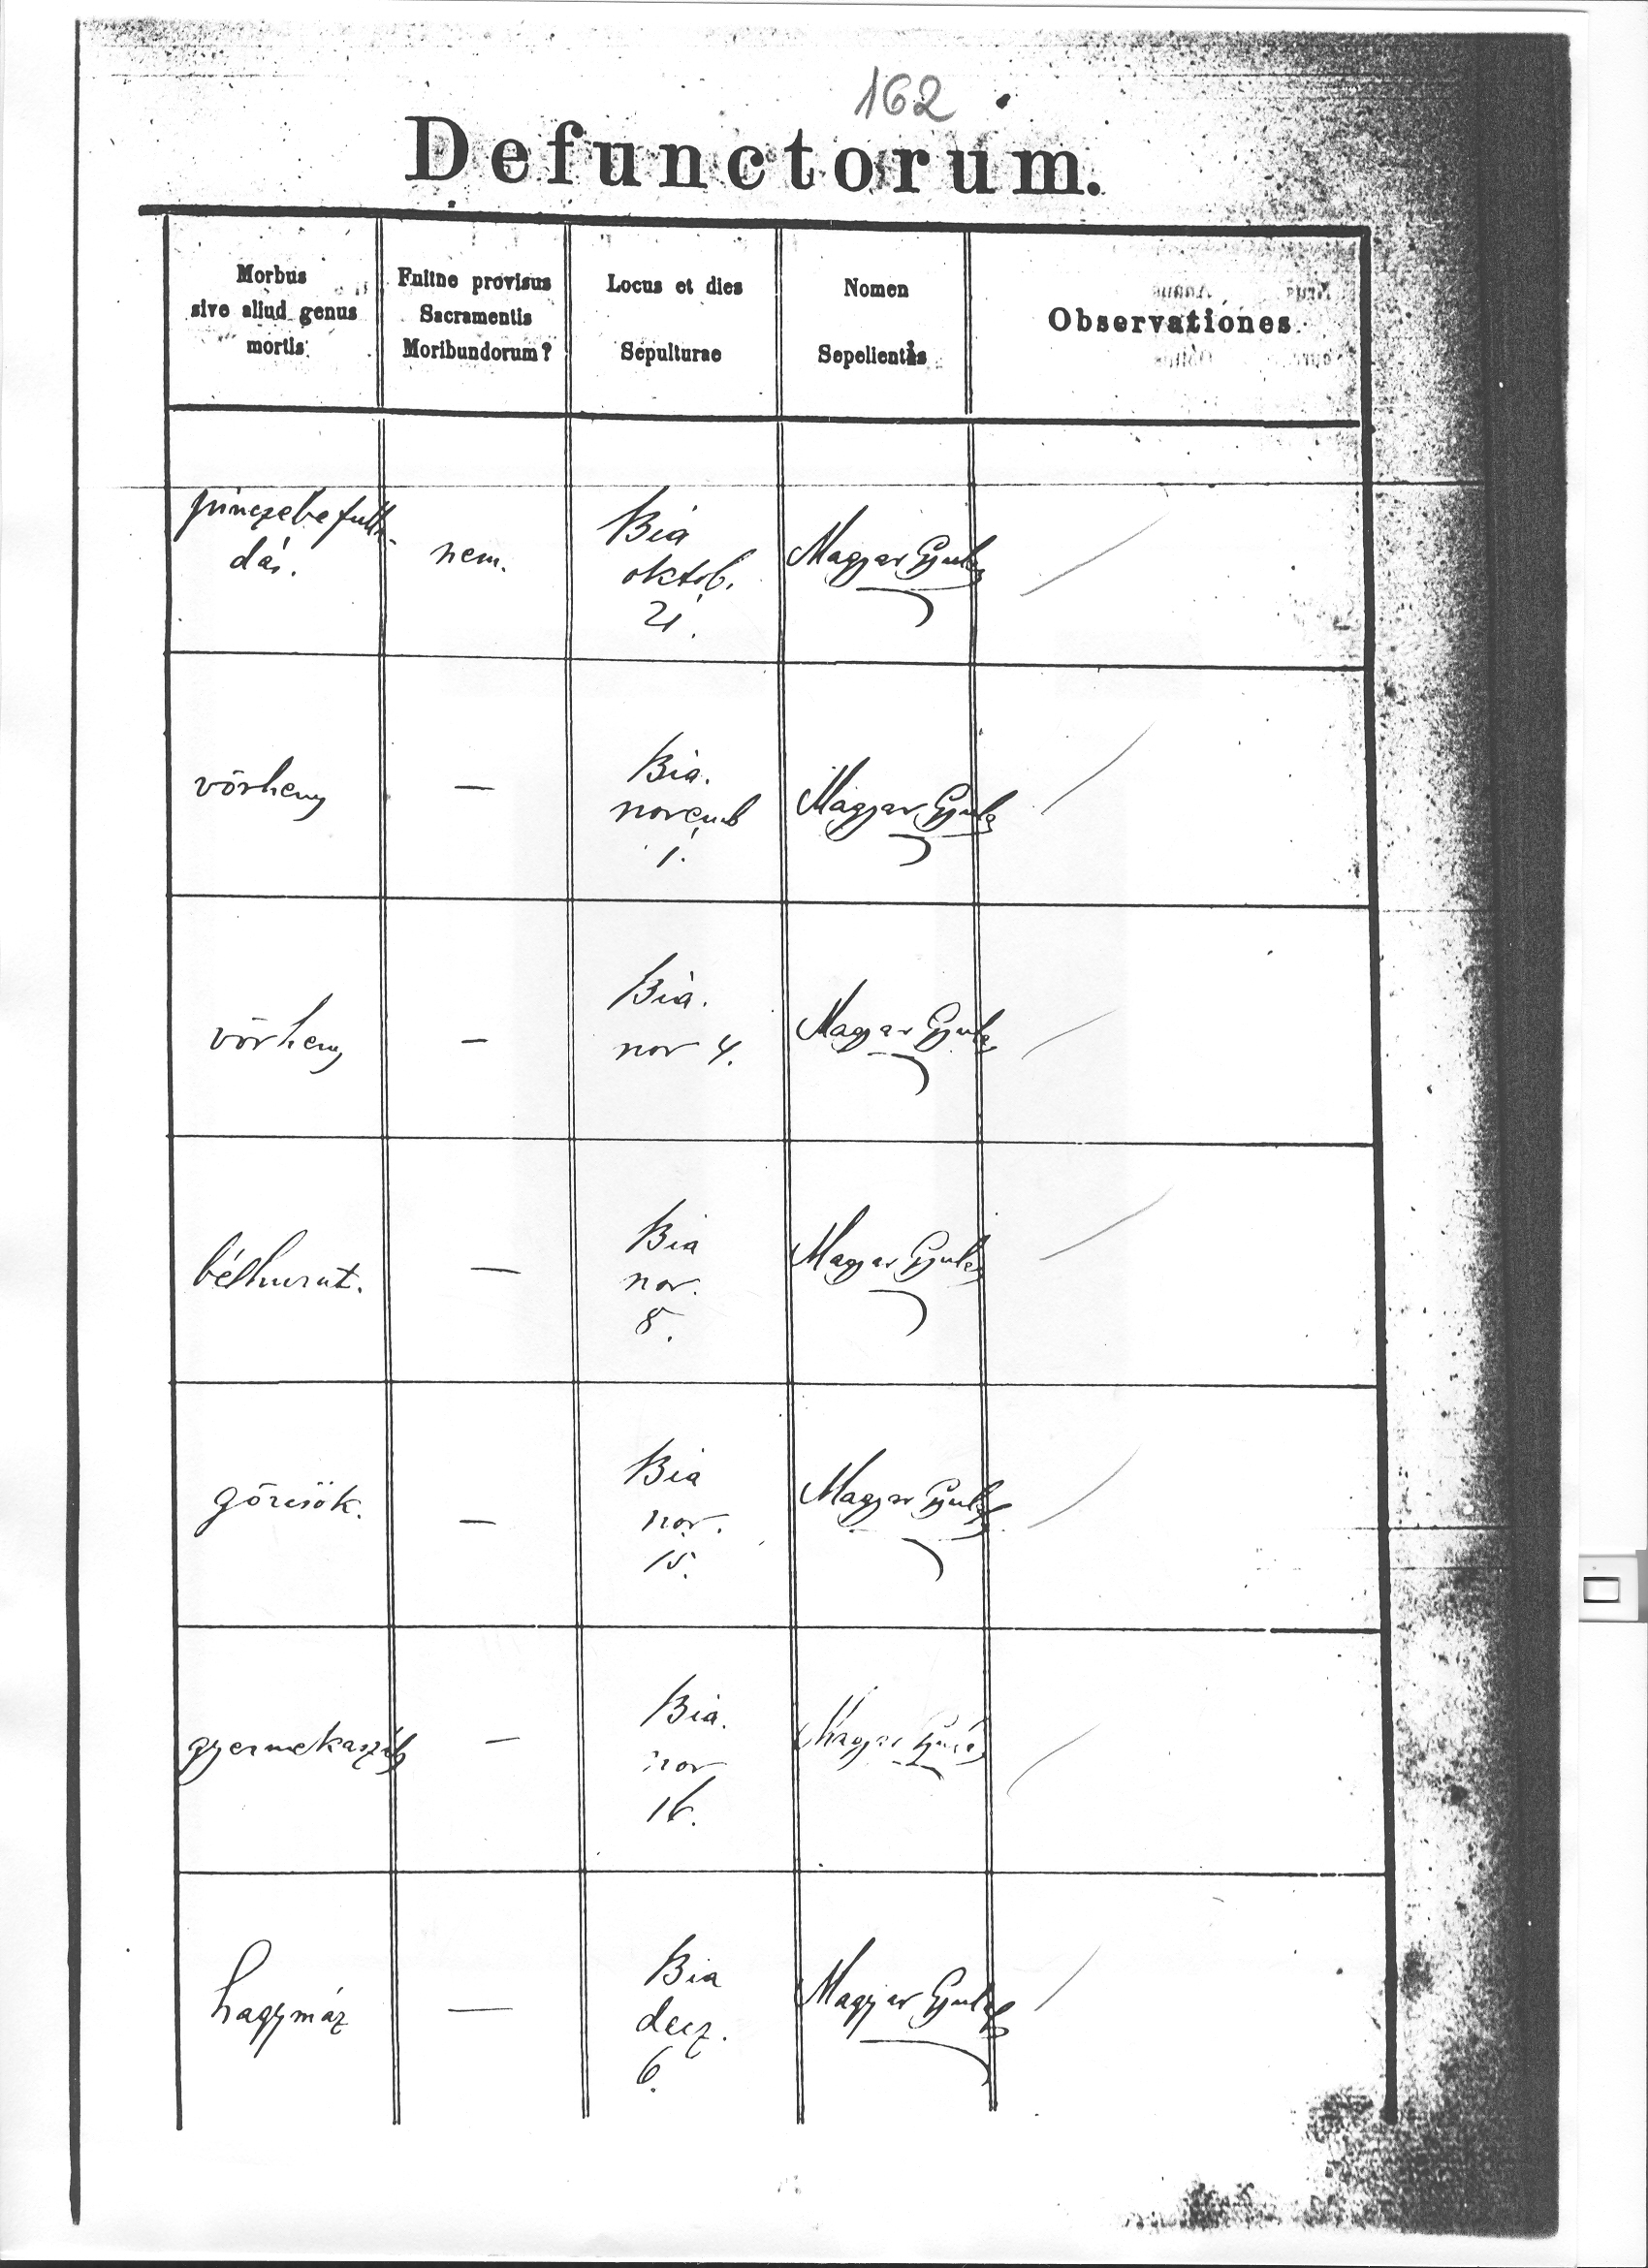 162
Defunctorum.
Morbus
sive aliud genus
mortis
Fuitne provisus
Sacramentis
Moribundorum?
Locus et dies
Sepulturae
Nomen
Sepelientis
Observationes
pinczebe fulla-
dás.
nem.
Bia
oktob.
21.
Magyar Gyula
vörheny
—
Bia.
novemb
1.
Magyar Gyula
vörheny
—
Bia.
nov 4.
Magyar Gyula
bélhurut.
—
Bia
nov.
8.
Magyar Gyula
görcsök.
—
Bia
nov.
15.
Magyar Gyula
gyermekaszály
—
Bia.
nov
16.
Magyar Gyula
hagymáz
—
Bia
decz.
6.
Magyar Gyula